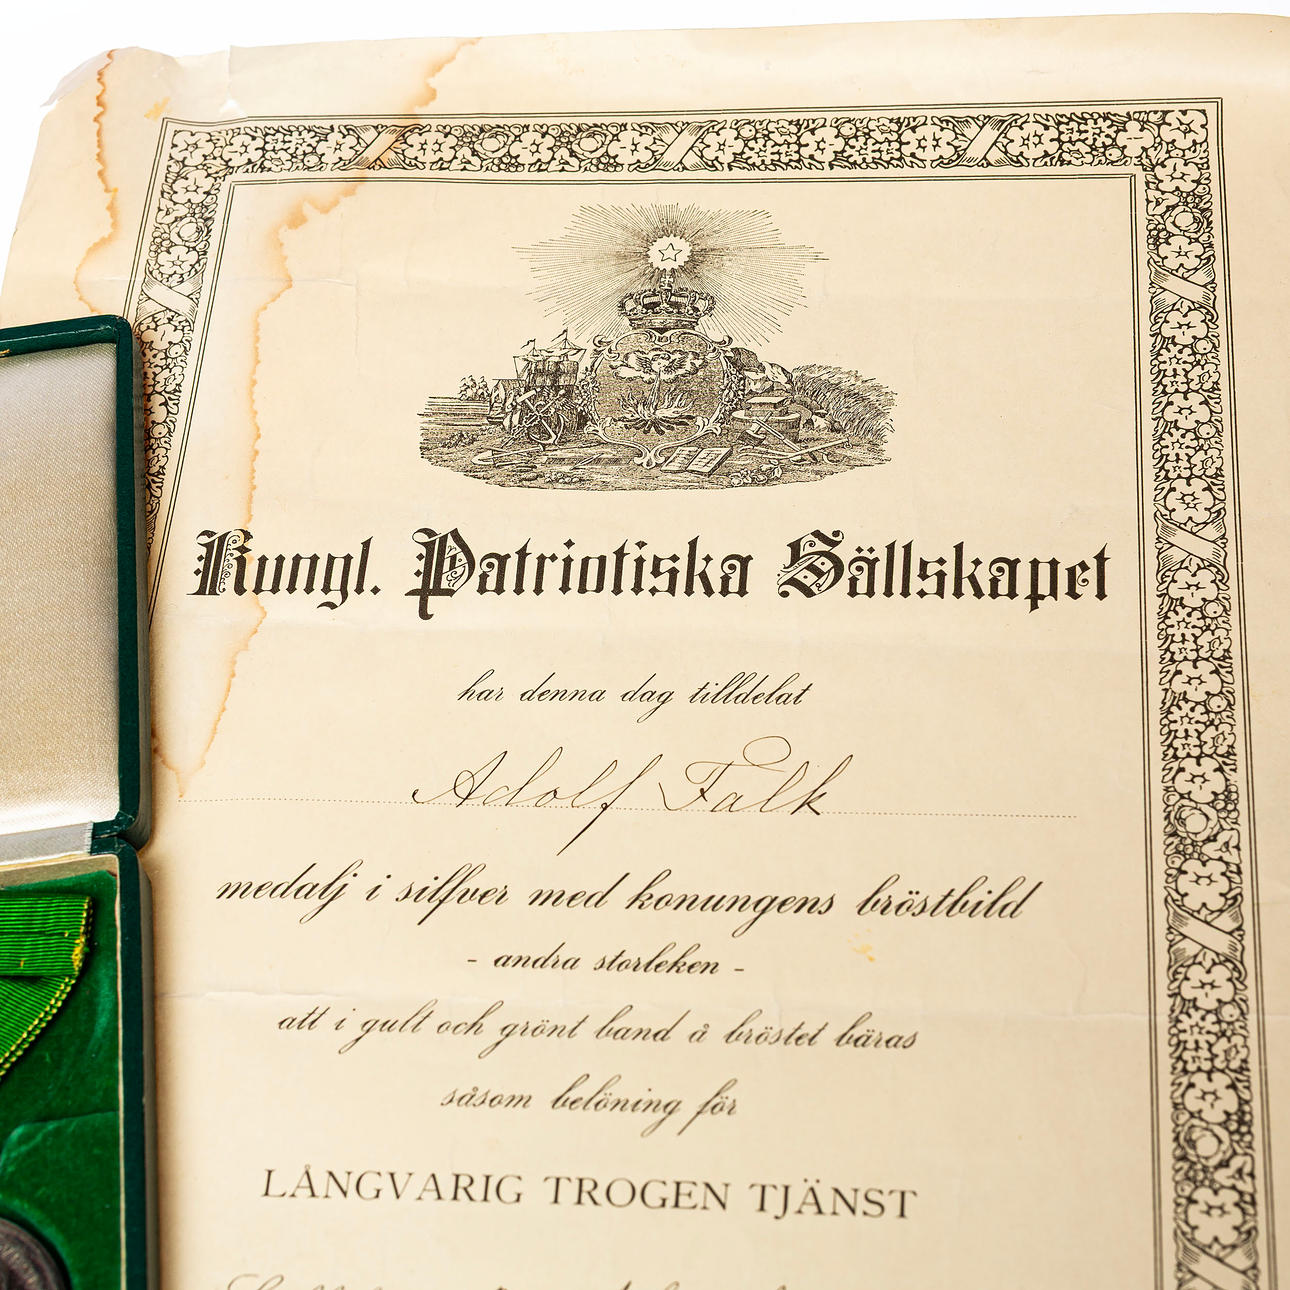 Kungl. Patriotiska Sällskapet
har denna dag tilldelat
Adolf Falk
medalj i silfver med konungens bröstbild
- andra storleken -
att i gult och grönt band å bröstet bäras
såsom belöning för
LÅNGVARIG TROGEN TJÄNST